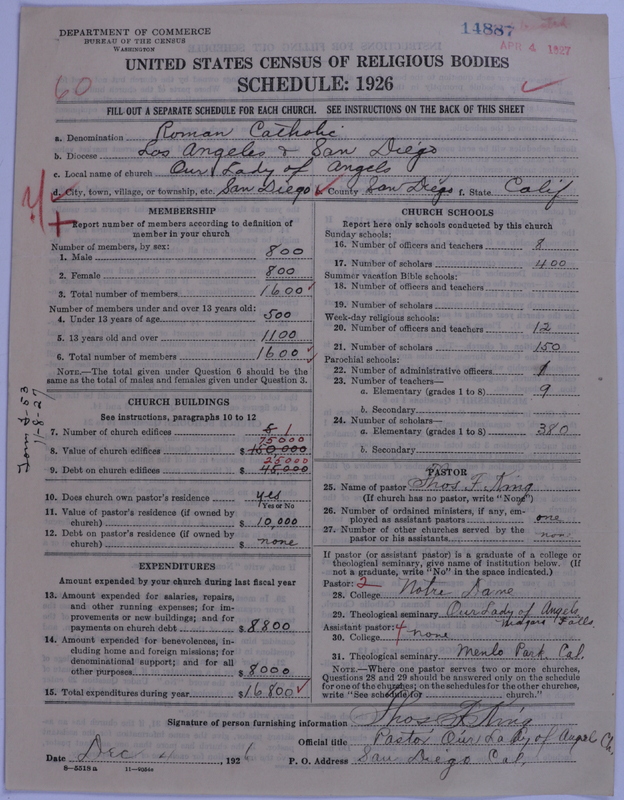 DEPARTMENT OF COMMERCE
BUREAU OF THE CENSUS
WASHINGTON
14887
APR 4 1927
UNITED STATES CENSUS OF RELIGIOUS BODIES
SCHEDULE: 1926
60
FILL OUT A SEPARATE SCHEDULE FOR EACH CHURCH. SEE INSTRUCTIONS ON THE BACK OF THIS SHEET
a. Denomination Roman Catholic
b. Diocese Los Angeles & San Diego
c. Local name of church Our Lady of Angels
d. City, town, village, or township, etc. San Diego e. County San Diego f. State Calif
MEMBERSHIP
Report number of members according to definition of
member in your church
Number of members, by sex:
1. Male 800
2. Female 800
3. Total number of members 1600
Number of members under and over 13 years old:
4. Under 13 years of age 500
5. 13 years old and over 1100
6. Total number of members 1600
NOTE.—The total given under Question 6 should be the
same as the total of males and females given under Question 3.
CHURCH BUILDINGS
See instructions, paragraphs 10 to 12
7. Number of church edifices 1
75000
8. Value of church edifices $ 150,000
25000
9. Debt on church edifices $ 45,000
10. Does church own pastor's residence yes
(Yes or No
11. Value of pastor's residence (if owned by
church) $ 10,000
12. Debt on pastor's residence (if owned by
church) $ none
EXPENDITURES
Amount expended by your church during last fiscal year
13. Amount expended for salaries, repairs,
and other running expenses; for im-
provements or new buildings; and for
payments on church debt $ 8800
14. Amount expended for benevolences, in-
cluding home and foreign missions; for
denominational support; and for all
other purposes $ 8000
15. Total expenditures during year $ 16800
CHURCH SCHOOLS
Report here only schools conducted by this church
Sunday schools:
16. Number of officers and teachers 8
17. Number of scholars 400
Summer vacation Bible schools:
18. Number of officers and teachers
19. Number of scholars
Week-day religious schools:
20. Number of officers and teachers 12
21. Number of scholars 150
Parochial schools:
22. Number of administrative officers 1
23. Number of teachers—
a. Elementary (grades 1 to 8) 9
b. Secondary
24. Number of scholars—
a. Elementary (grades 1 to 8) 380
b. Secondary
PASTOR
25. Name of pastor Thos. F. King
(If church has no pastor, write "None")
26. Number of ordained ministers, if any, em-
ployed as assistant pastors one
27. Number of other churches served by the
pastor or his assistants non
If pastor (or assistant pastor) is a graduate of a college or
theological seminary, give name of institution below. (If
not a graduate, write "No" in the space indicated.)
Pastor: 2
28. College Notre Dame
29. Theological seminary Our Lady of Angels
Niagara Falls
Assistant pastor: 4
30. College none
31. Theological seminary Menlo Park Cal.
NOTE.—Where one pastor serves two or more churches,
Questions 28 and 29 should be answered only on the schedule
for one of the churches; on the schedules for the other churches,
write "See schedule for church."
Signature of person furnishing information Thos F King
Official title Pastor Our Lady of Angels Ch.
Date Dec , 1926 P. O. Address San Diego Cal.
8—5518a 11—9054c